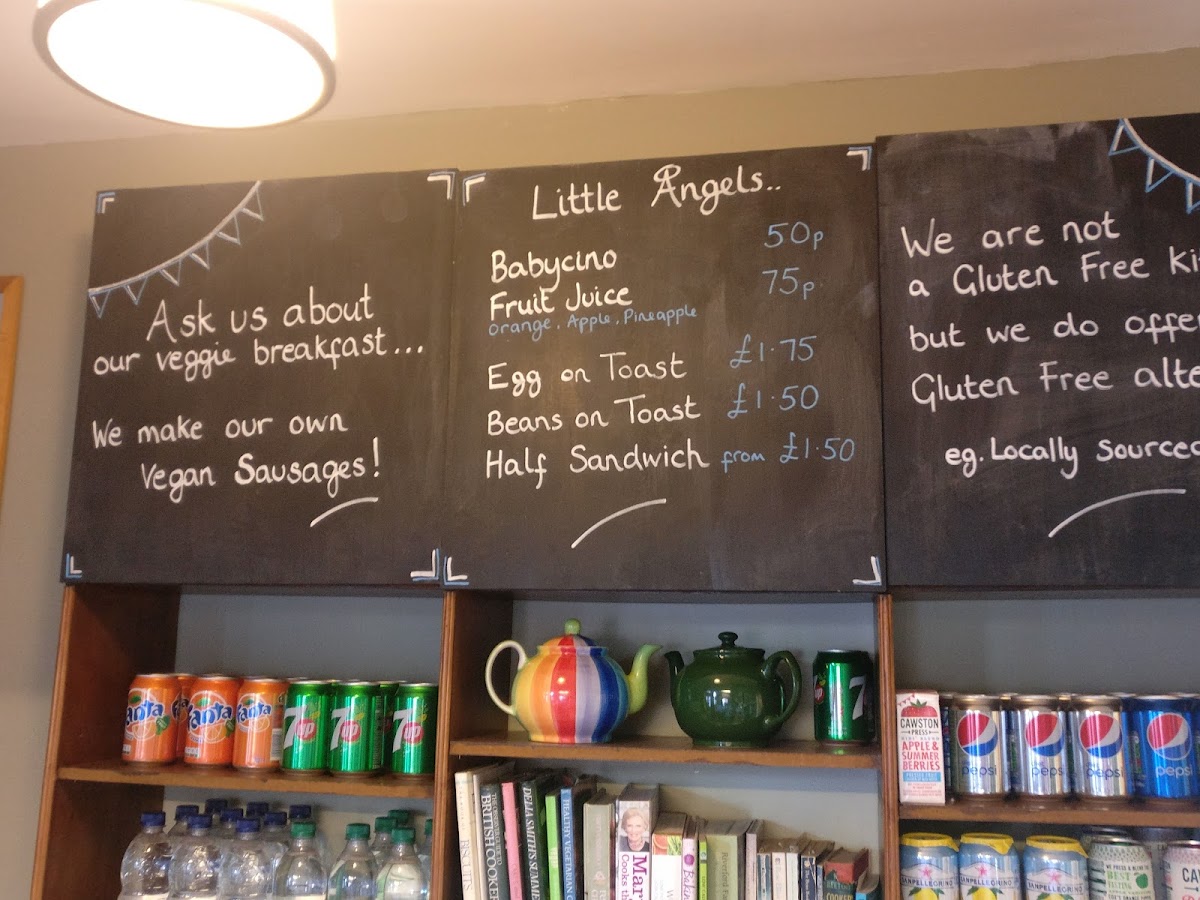 Ask us about
our veggie breakfast...
We make our own
Vegan Sausages!
Little Angels..
Babycino 50p
Fruit Juice 75p
Orange, Apple, Pineapple
Egg on Toast £1.75
Beans on Toast £1.50
Half Sandwich from £1.50
We are not
a Gluten Free Ki
but we do offe
Gluten Free alte
eg. Locally Sourced
Fanta
Fanta
Fanta
7up
7up
7up
7
CAWSTON
PRESS
APPLE &
SUMMER
BERRIES
pepsi
pepsi
pepsi
pepsi
BISCUITS
BRITISH COOKER
DELIA SMITH'S SUMMER
HEALTHY VEGETARIAN
Mar
Cooks th
SANPELLEGRINO
SANPELLEGRINO
BEST
CAW